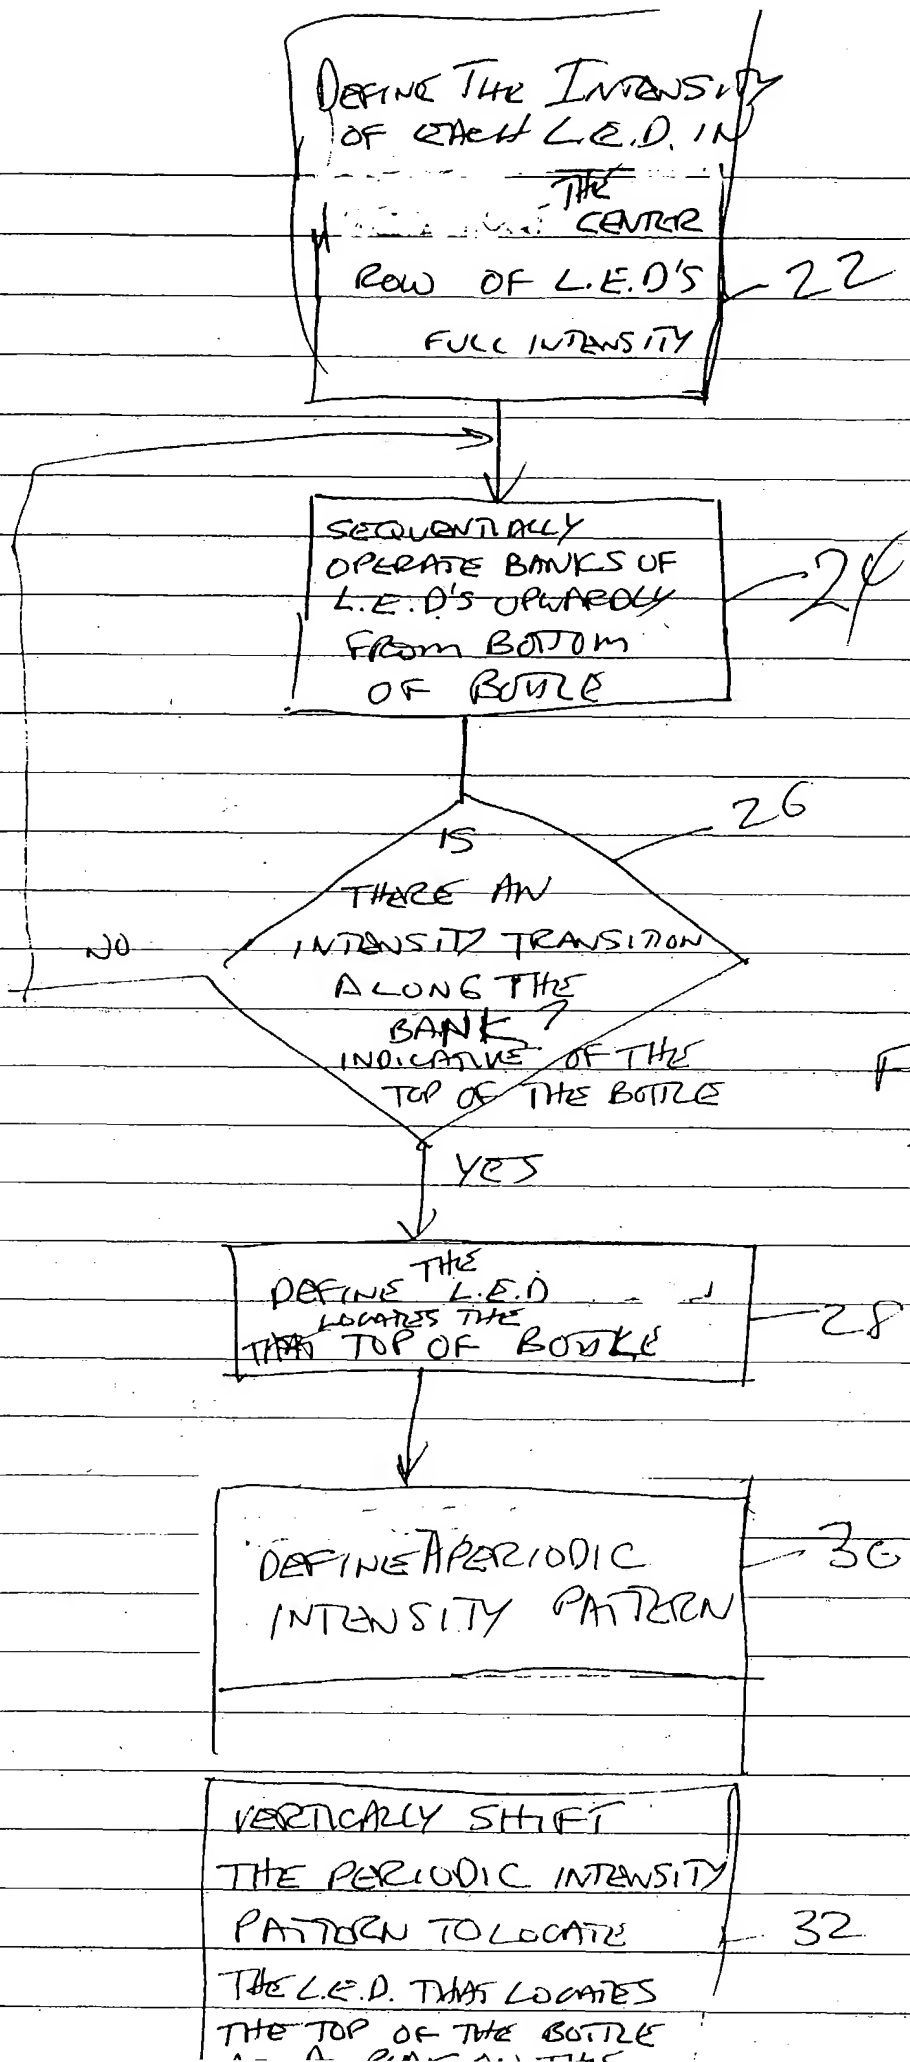 DEFINE THE INTENSITY
OF EACH L.E.D. IN
THE
CENTER
ROW OF L.E.D'S
FULL INTENSITY
22
SEQUENTIALLY
OPERATE BANKS OF
L.E.D'S UPWARDLY
FROM BOTTOM
OF BOTTLE
24
26
IS
THERE AN
INTENSITY TRANSITION
ALONG THE
BANK?
INDICATIVE OF THE
TOP OF THE BOTTLE
NO
F
YES
THE
DEFINE L.E.D
LOCATES THE
THAT TOP OF BOTTLE
28
DEFINE A PERIODIC
INTENSITY PATTERN
30
VERTICALLY SHIFT
THE PERIODIC INTENSITY
PATTERN TO LOCATE
32
THE L.E.D. THAT LOCATES
THE TOP OF THE BOTTLE